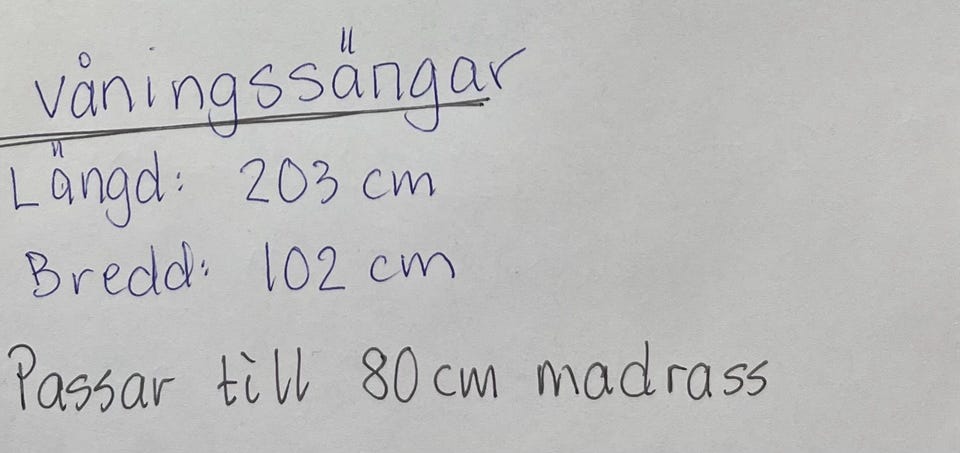 våningssängar
Längd: 203 cm
Bredd: 102 cm
Passar till 80 cm madrass